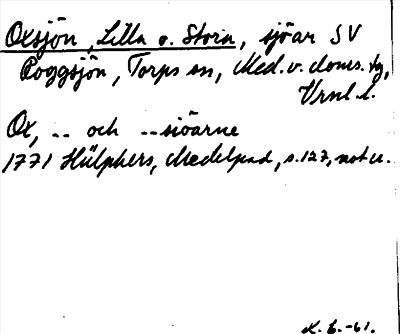 Oxsjön, Lilla o. Stora, sjöar SV
Roggsjön, Torps sn, Med. v. doms. hg,
Vrnl. l.
Ox, -- och --siöarne
1771 Hülphers, Medelpad, s. 127, not u.
K. E. -61.